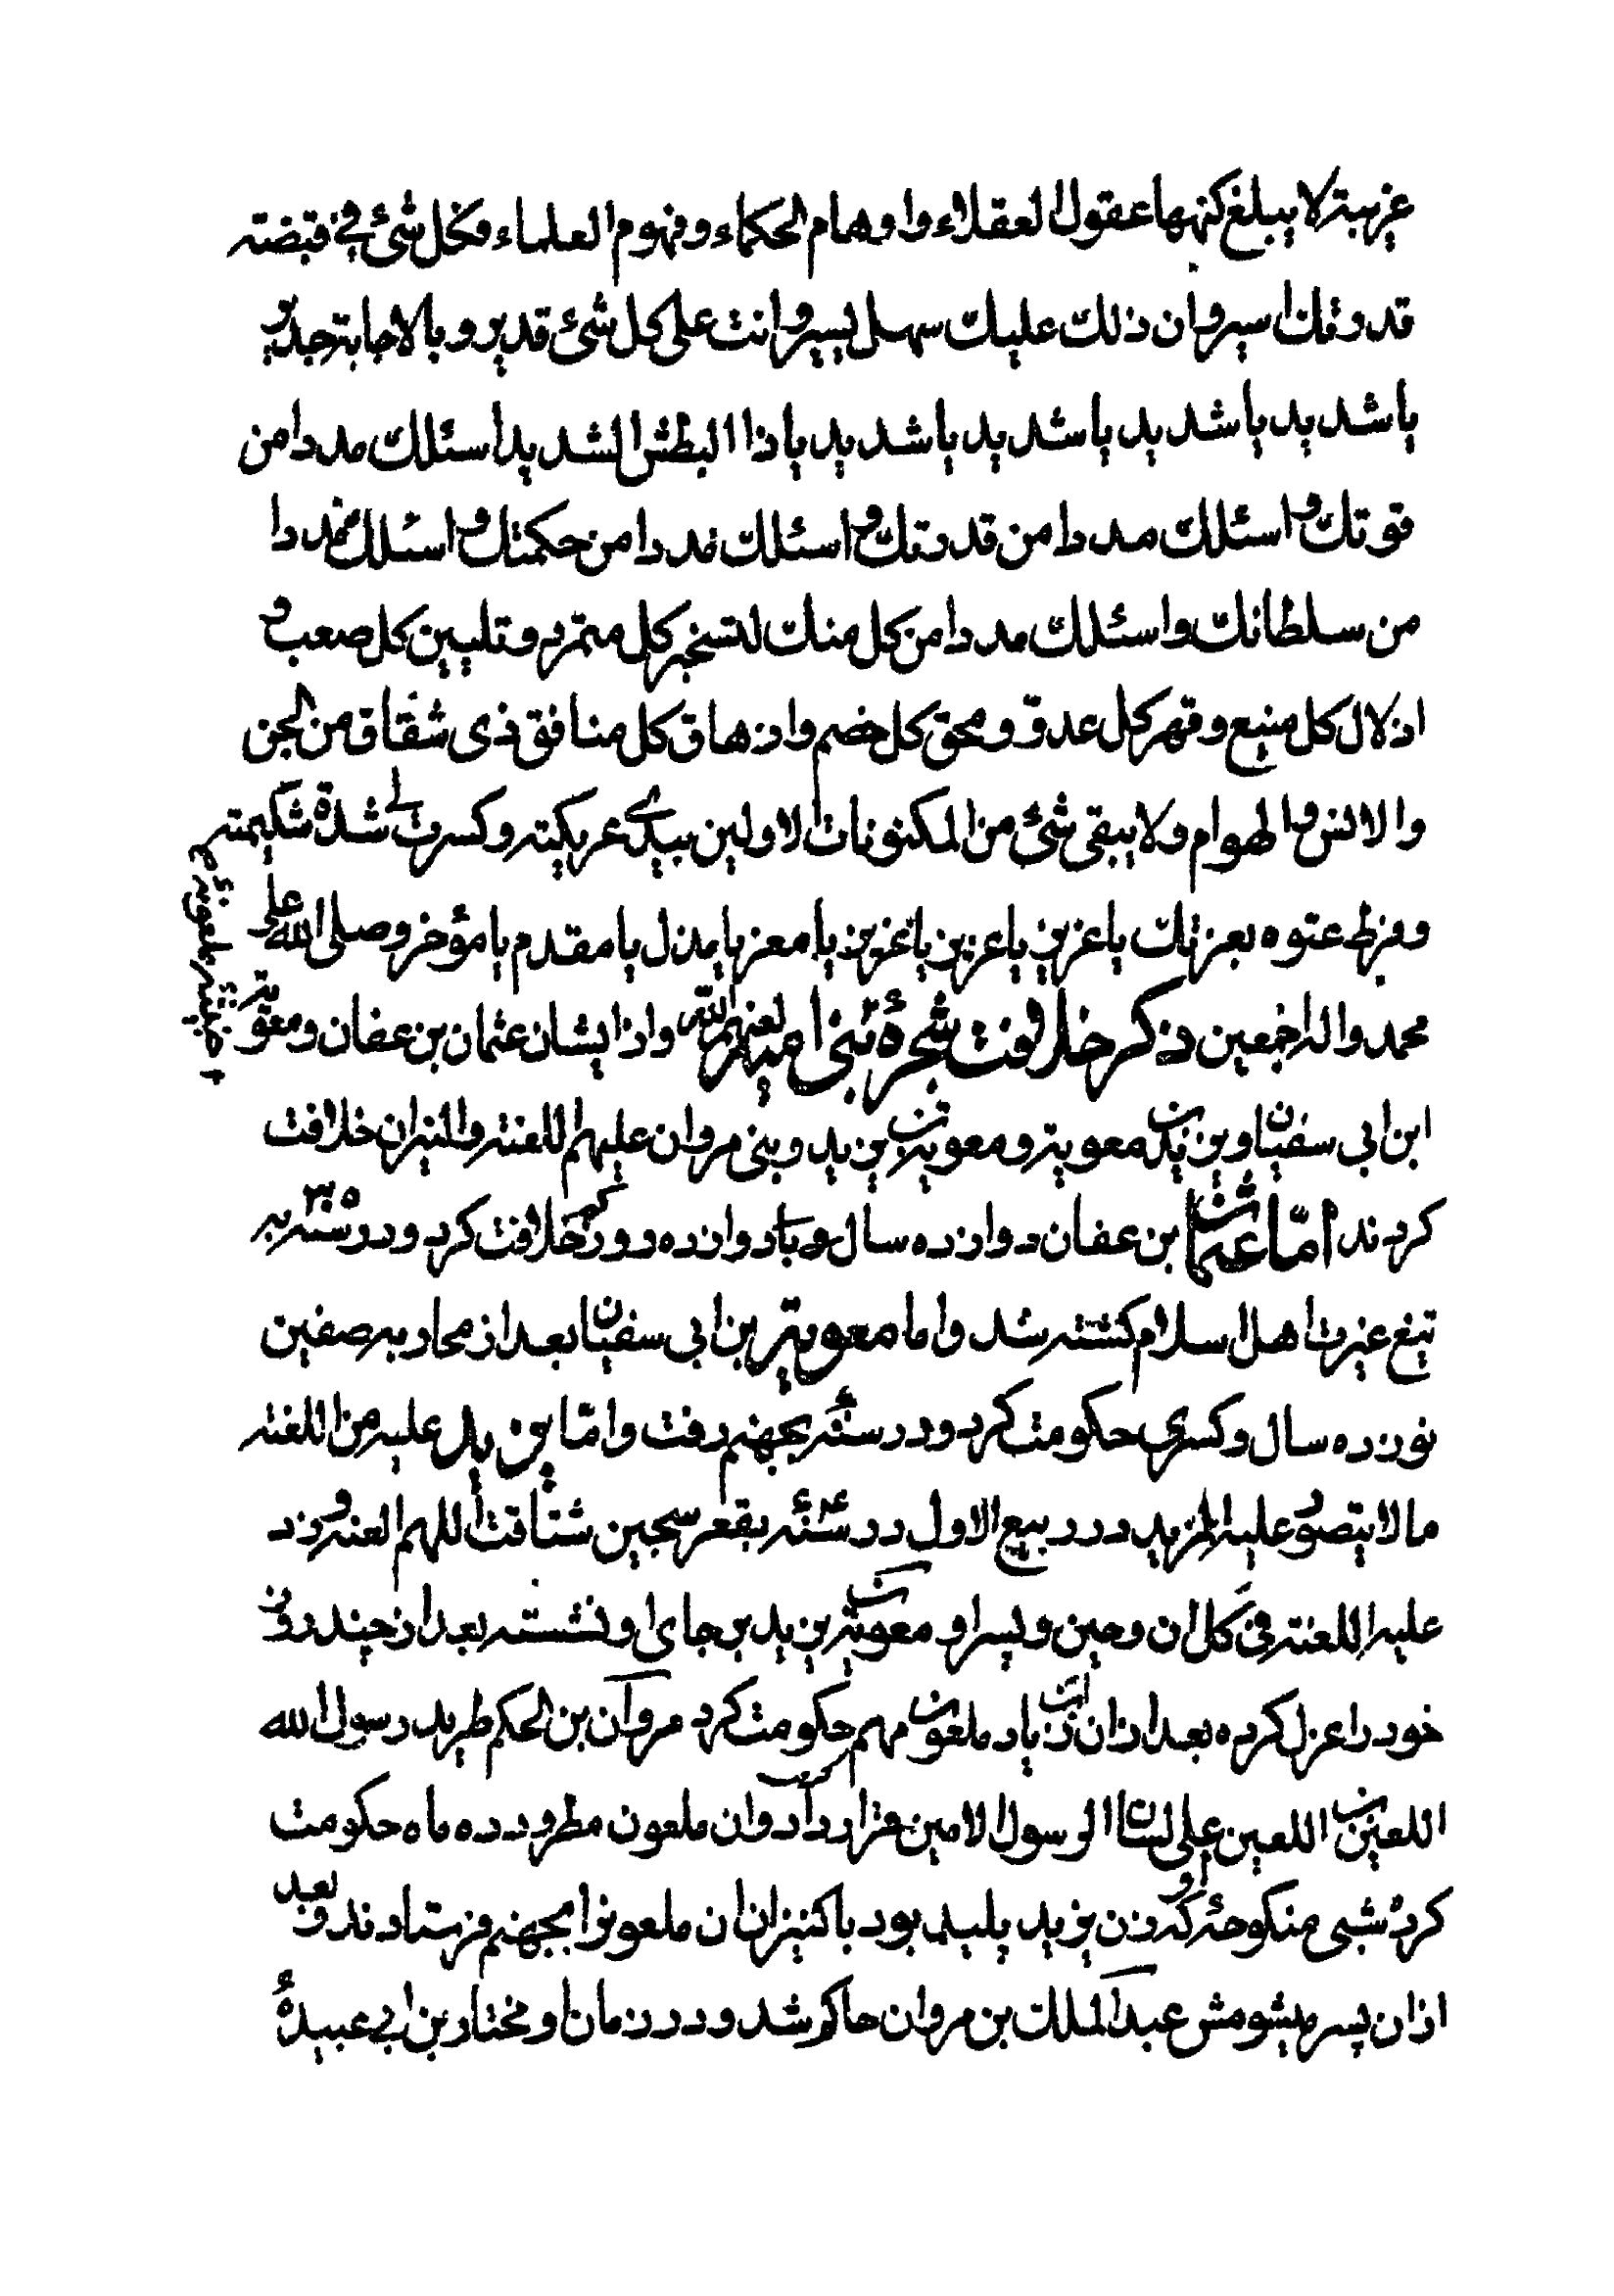 غريبة لا يبلغ كنهها عقول العقلاء واوهام الحكماء وفهوم العلماء فكل شئ في قبضته
قدرتك اسير وان ذلك عليك سهل يسير وانت على كل شئ قدير وبالاجابة جدير
يا شديد يا شديد يا شديد يا شديد يا ذا البطش الشديد اسئلك مددا من
قوتك واسئلك مددا من قدرتك واسئلك مددا من حكمتك واسئلك مددا
من سلطانك واسئلك مددا من كل منك لتسخير كل متمرد وتليين كل صعب و
اذلال كل منيع وقهر كل عدو ومحق كل خصم وازهاق كل منافق ذى شقاق من الجن
والانس والهوام ولا يبقى شئ من المكنونات لا ولين بيدي عريكته وكسرت لي شدة شكيمته
وفرط عتوه بعزتك يا عزيز يا عزيز يا عزيز يا معز يا مذل يا مقدم يا مؤخر وصلى الله على
محمد واله اجمعين ذكر خلافت شجرهٔ بنى اميه لعنهم الله وازايشان عثمان بن عفان ومعوية
ابن ابي سفيان ويزيد بن معوية ومعوية بن يزيد وبنى مروان عليهم اللعنة والنيران خلافت
كردند امّا عثمان بن عفان دوازده سال ويا دوازده روز كم خلافت كرد ودر سنه ٣٥ به
تيغ غيرت اهل اسلام كشته شد واما معوية بن ابي سفيان بعد از محاربه صفين
نوزده سال وكسرى حكومت كرد ودر سنه بجهنم رفت وامّا يزيد عليه من اللعنه
ما لا يتصور عليه المزيد در ربيع الاول در سنه بقعر سجين شتافت اللهم العنه وزد
عليه اللعنة في كل ان وحين وپسر او معوية بن يزيد بر جاى او نشسته بعد از چند روز
خود را عزل كرده بعد ازان ابن زياد ملعون مهم حكومت كرد مروان بن الحكم طريد رسول الله
اللعين بن اللعين على لسان الرسول الامين قرار داد وان ملعون مطرود ده ماه حكومت
كرد شبى منكوحهٔ او كه زن يزيد پليد بود با كنيزان ان ملعونرا بجهنم فرستادند وبعد
ازان پسر ميشومش عبد الملك بن مروان حاكم شد ودر زمان او مختار بن ابي عبيدهٔ